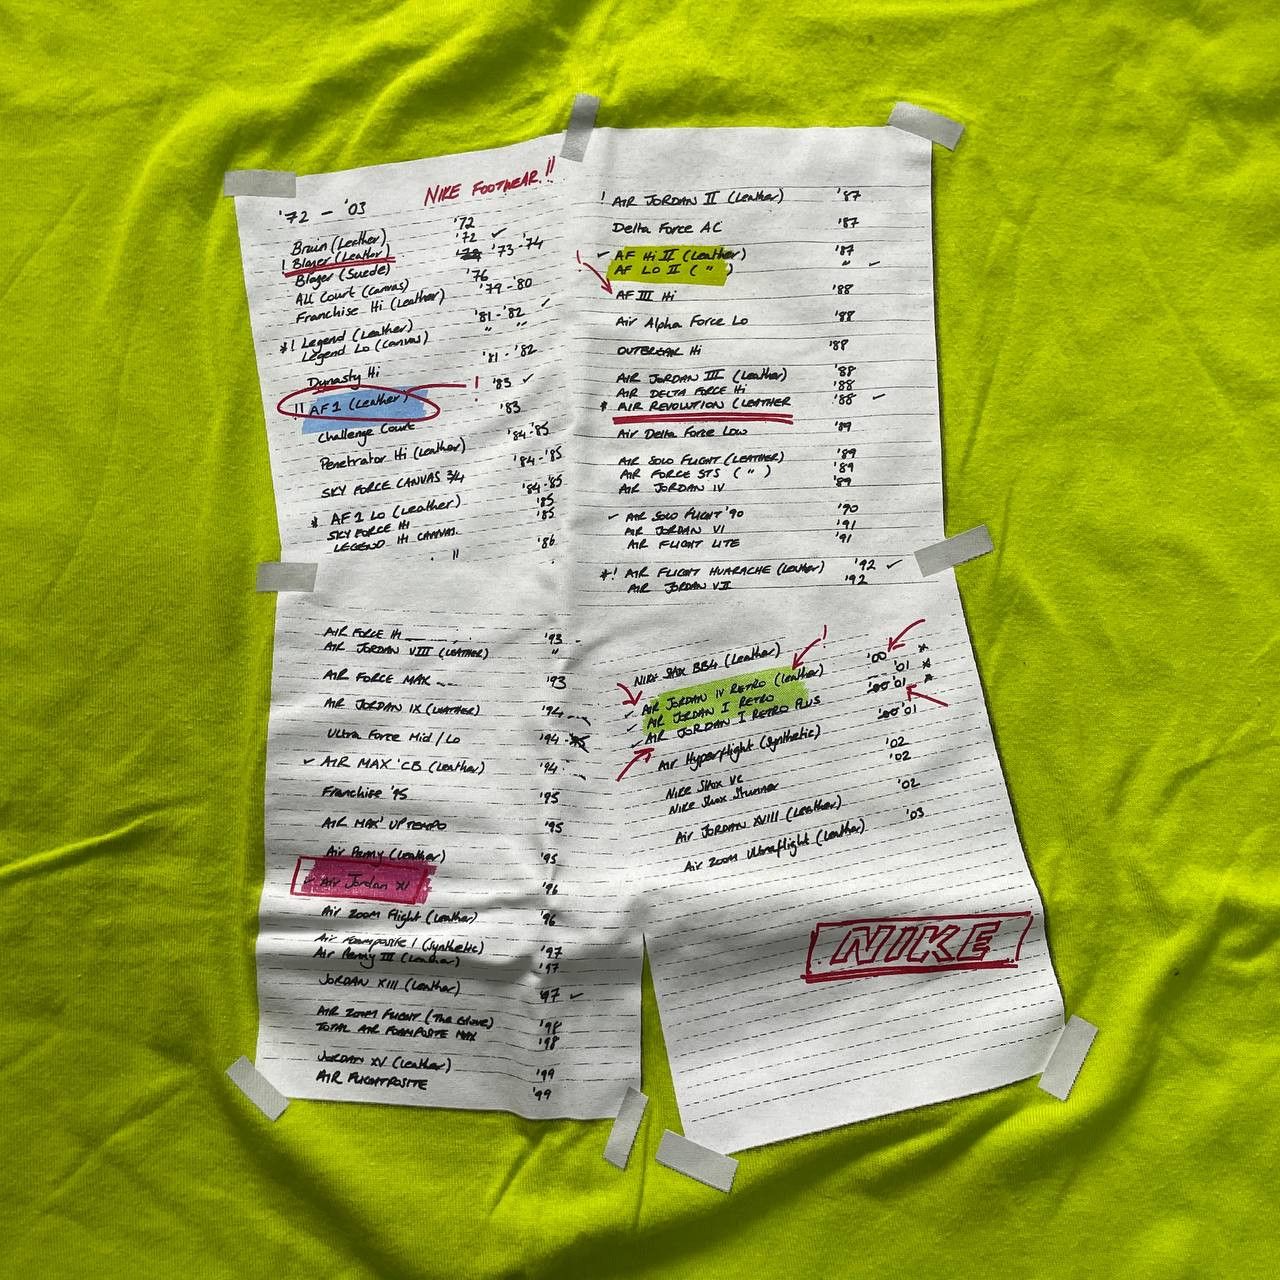 NIKE FOOTWEAR!!
'72 – '03
Bruin (Leather) '72
! Blazer (Leather) '72 ✓
Blazer (Suede) '73-'74
All Court (Canvas) '76
Franchise Hi (Leather) '79-'80
*! Legend (Leather) '81-'82 ✓
Legend Lo (Canvas) " "
Dynasty Hi '81-'82
!! AF1 (Leather) ! '83 ✓
Challenge Court '83
Penetrator Hi (Leather) '84-'85
SKY FORCE CANVAS 3/4 '84-'85
* AF1 Lo (Leather) '84-'85
SKY FORCE Hi '85
LEGEND Hi CANVAS. '85
" '86
! AIR JORDAN II (Leather) '87
Delta Force AC '87
✓ AF Hi II (Leather) '87
AF LO II ( " ) " ✓
! AF III Hi '88
Air Alpha Force Lo '88
OUTBREAK Hi '88
AIR JORDAN III (Leather) '88
AIR DELTA FORCE Hi '88
* AIR REVOLUTION (LEATHER '88 ✓
Air Delta Force Low '89
AIR SOLO FLIGHT (LEATHER) '89
AIR FORCE STS ( " ) '89
AIR JORDAN IV '89
✓ AIR SOLO FLIGHT '90 '90
AIR JORDAN VI '91
AIR FLIGHT LITE '91
*! AIR FLIGHT HUARACHE (Leather) '92 ✓
AIR JORDAN VII '92
AIR FORCE Hi '93
AIR JORDAN VIII (LEATHER) "
AIR FORCE MAX '93
AIR JORDAN IX (LEATHER) '94
Ultra Force Mid/Lo '94
✓ AIR MAX 'CB (Leather) '94
Franchise '95 '95
AIR MAX' UPTEMPO '95
Air Penny (Leather) '95
✓ Air Jordan XI '96
Air Zoom Flight (Leather) '96
Air Foamposite 1 (Synthetic) '97
Air Penny III (Leather) '97
JORDAN XIII (Leather) '97 ✓
AIR ZOOM FLIGHT (The Glove) '98
TOTAL AIR FOAMPOSITE MAX '98
JORDAN XV (Leather) '99
AIR FLIGHTPOSITE '99
NIKE SHOX BB4 (Leather) '00
✓ AIR JORDAN IV RETRO (Leather) ! '01 *
✓ AIR JORDAN I RETRO '00 '01 *
✓ AIR JORDAN I RETRO PLUS '00 '01 *
Air Hyperflight (Synthetic) '02
NIKE SHOX VC '02
NIKE Shox Stunner '02
Air JORDAN XVIII (Leather) '03
Air Zoom Ultraflight (Leather)
NIKE